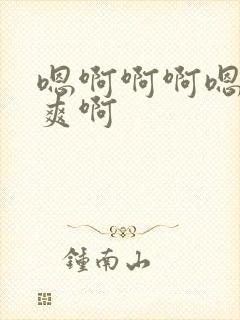 嗯啊啊啊嗯
爽啊
鍾南山